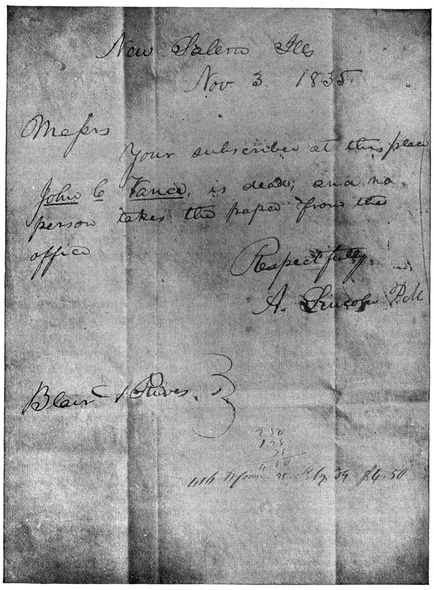 New Salem Ills
Nov 3 1835.
Messrs
Your subscriber at this place
John C Vance, is dead; and no
person takes the paper from the
office
Respectfully.
A. Lincoln P.M
Blair & Rives.